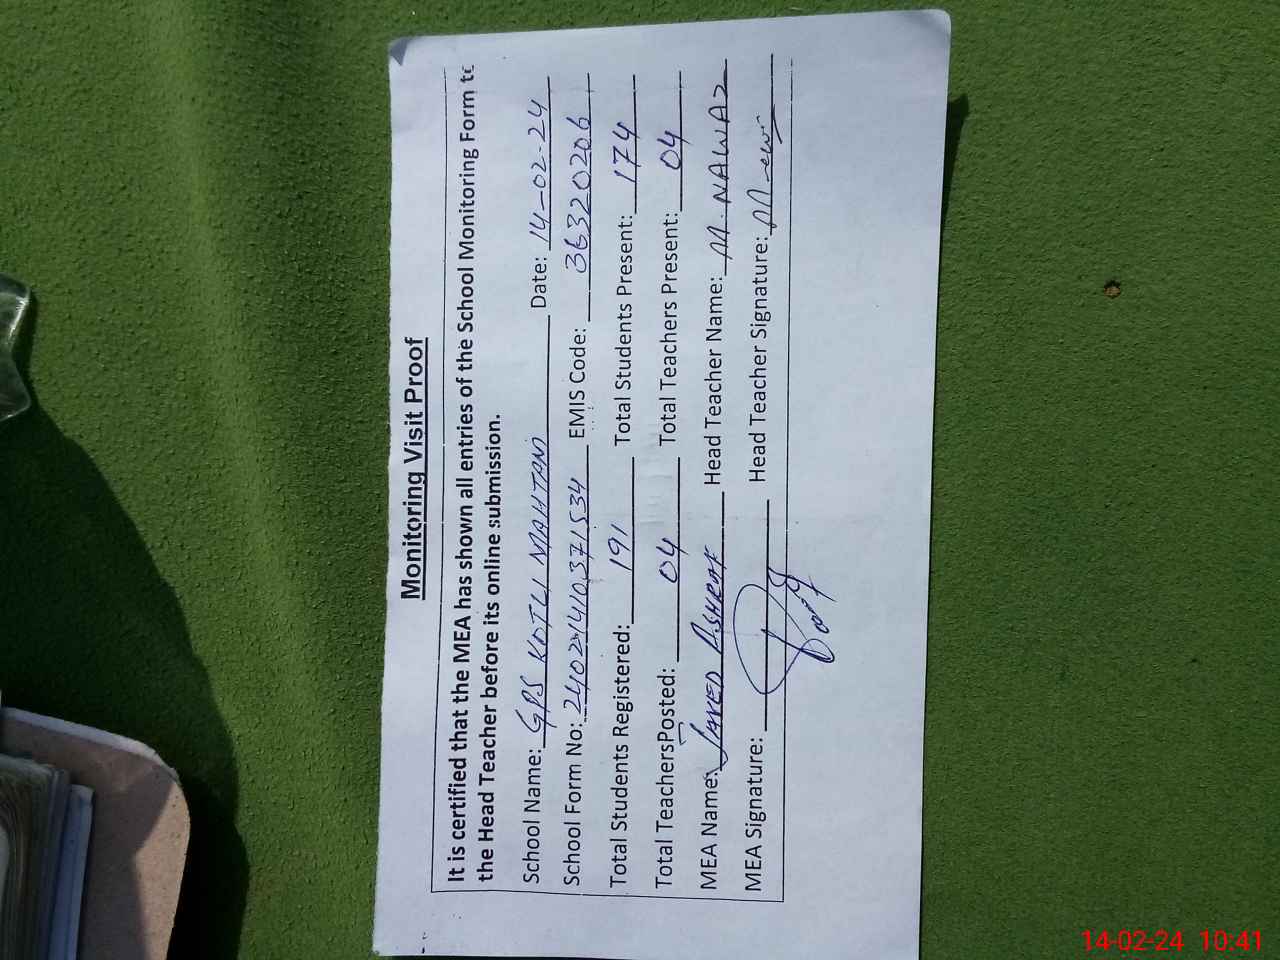 Monitoring Visit Proof
It is certified that the MEA has shown all entries of the School Monitoring Form to
the Head Teacher before its online submission.
School Name: GPS KOTLI MAHTAM Date: 14-02-24
School Form No: EMIS Code: 36320206
Total Students Registered: 191 Total Students Present: 174
Total TeachersPosted: 04 Total Teachers Present: 04
MEA Name: JAVED ASHRAF Head Teacher Name: M. NAWAZ
MEA Signature: Head Teacher Signature:
14-02-24 10:41